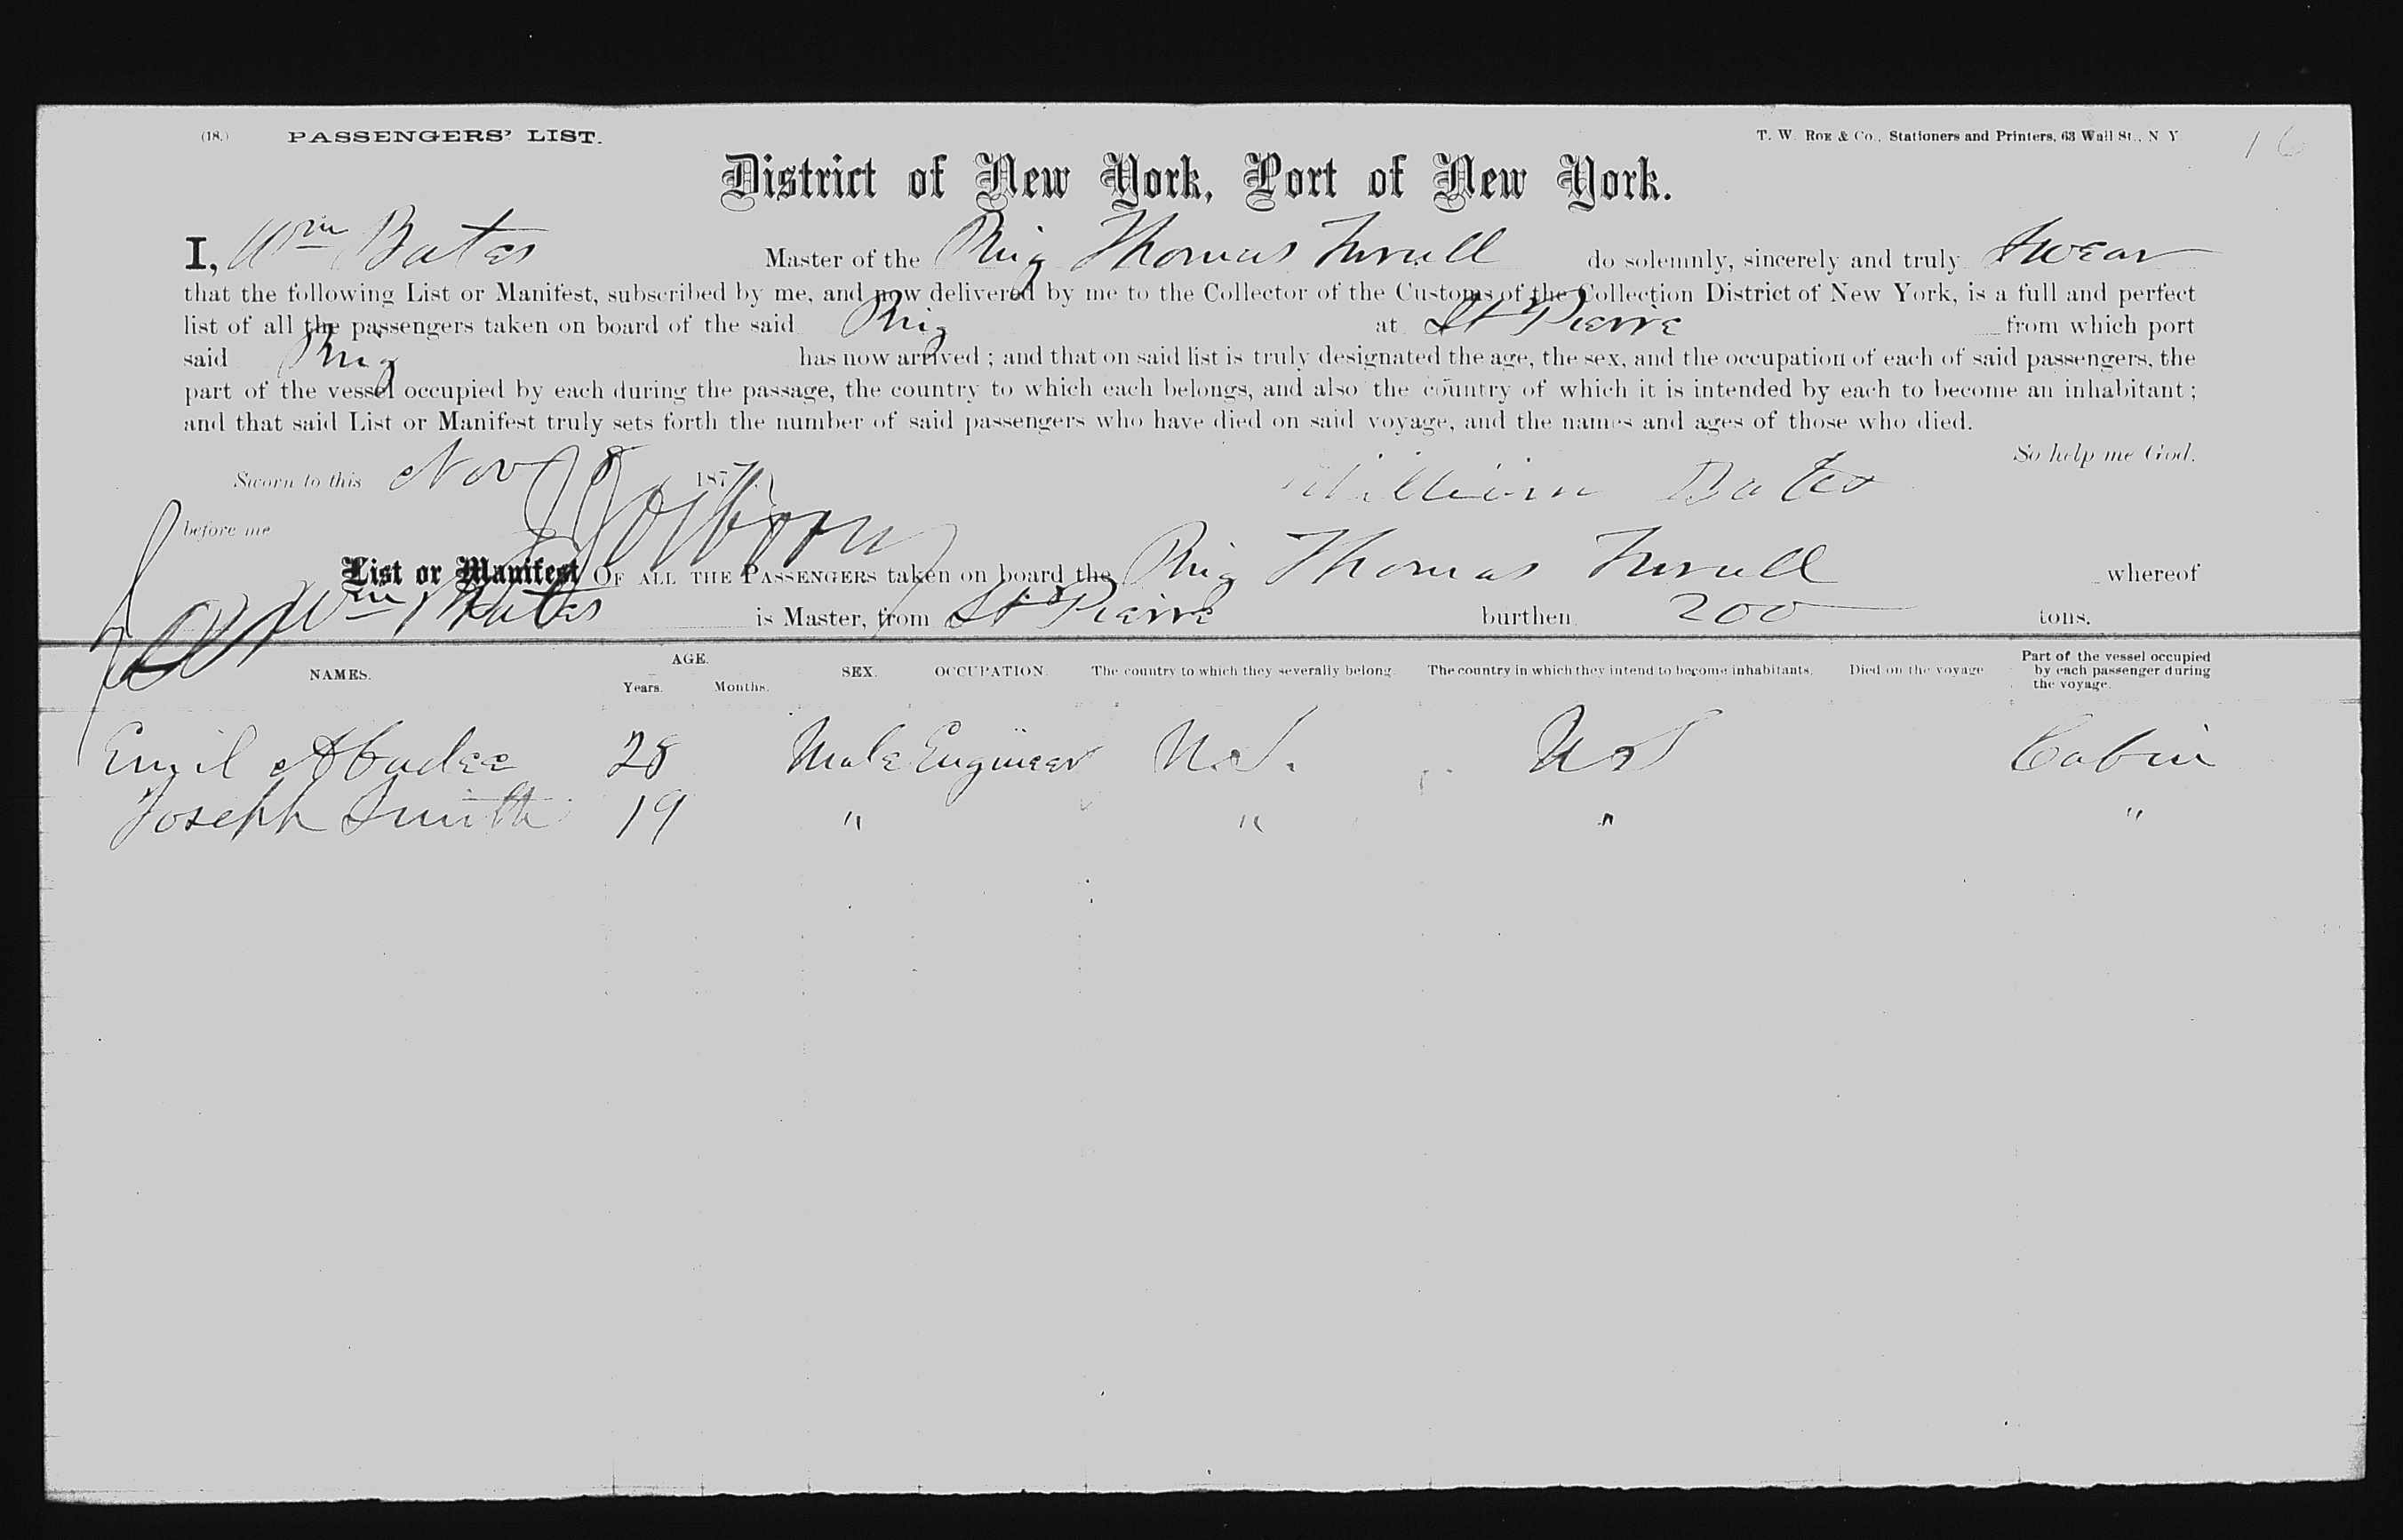 (18.) PASSENGERS' LIST. T. W. ROE & Co., Stationers and Printers, 63 Wall St., N Y 16
District of New York, Port of New York.
I, Wm Bates Master of the Brig Thomas Turull do solemnly, sincerely and truly swear
that the following List or Manifest, subscribed by me, and now delivered by me to the Collector of the Customs of the Collection District of New York, is a full and perfect
list of all the passengers taken on board of the said Brig at St Pierre from which port
said Brig has now arrived ; and that on said list is truly designated the age, the sex, and the occupation of each of said passengers, the
part of the vessel occupied by each during the passage, the country to which each belongs, and also the country of which it is intended by each to become an inhabitant ;
and that said List or Manifest truly sets forth the number of said passengers who have died on said voyage, and the names and ages of those who died.
So help me God.
Sworn to this Nov 8 1877 William Bates
before me
List or Manifest OF ALL THE PASSENGERS taken on board the Brig Thomas Turull whereof
Wm Bates is Master, from St Pierre burthen 200 tons.
NAMES. AGE. Years. Months. SEX. OCCUPATION. The country to which they severally belong. The country in which they intend to become inhabitants. Died on the voyage Part of the vessel occupied by each passenger during the voyage.
Emil Abadee 28 Male Engineer U.S. US Cabin
Joseph Smith 19 " " " "